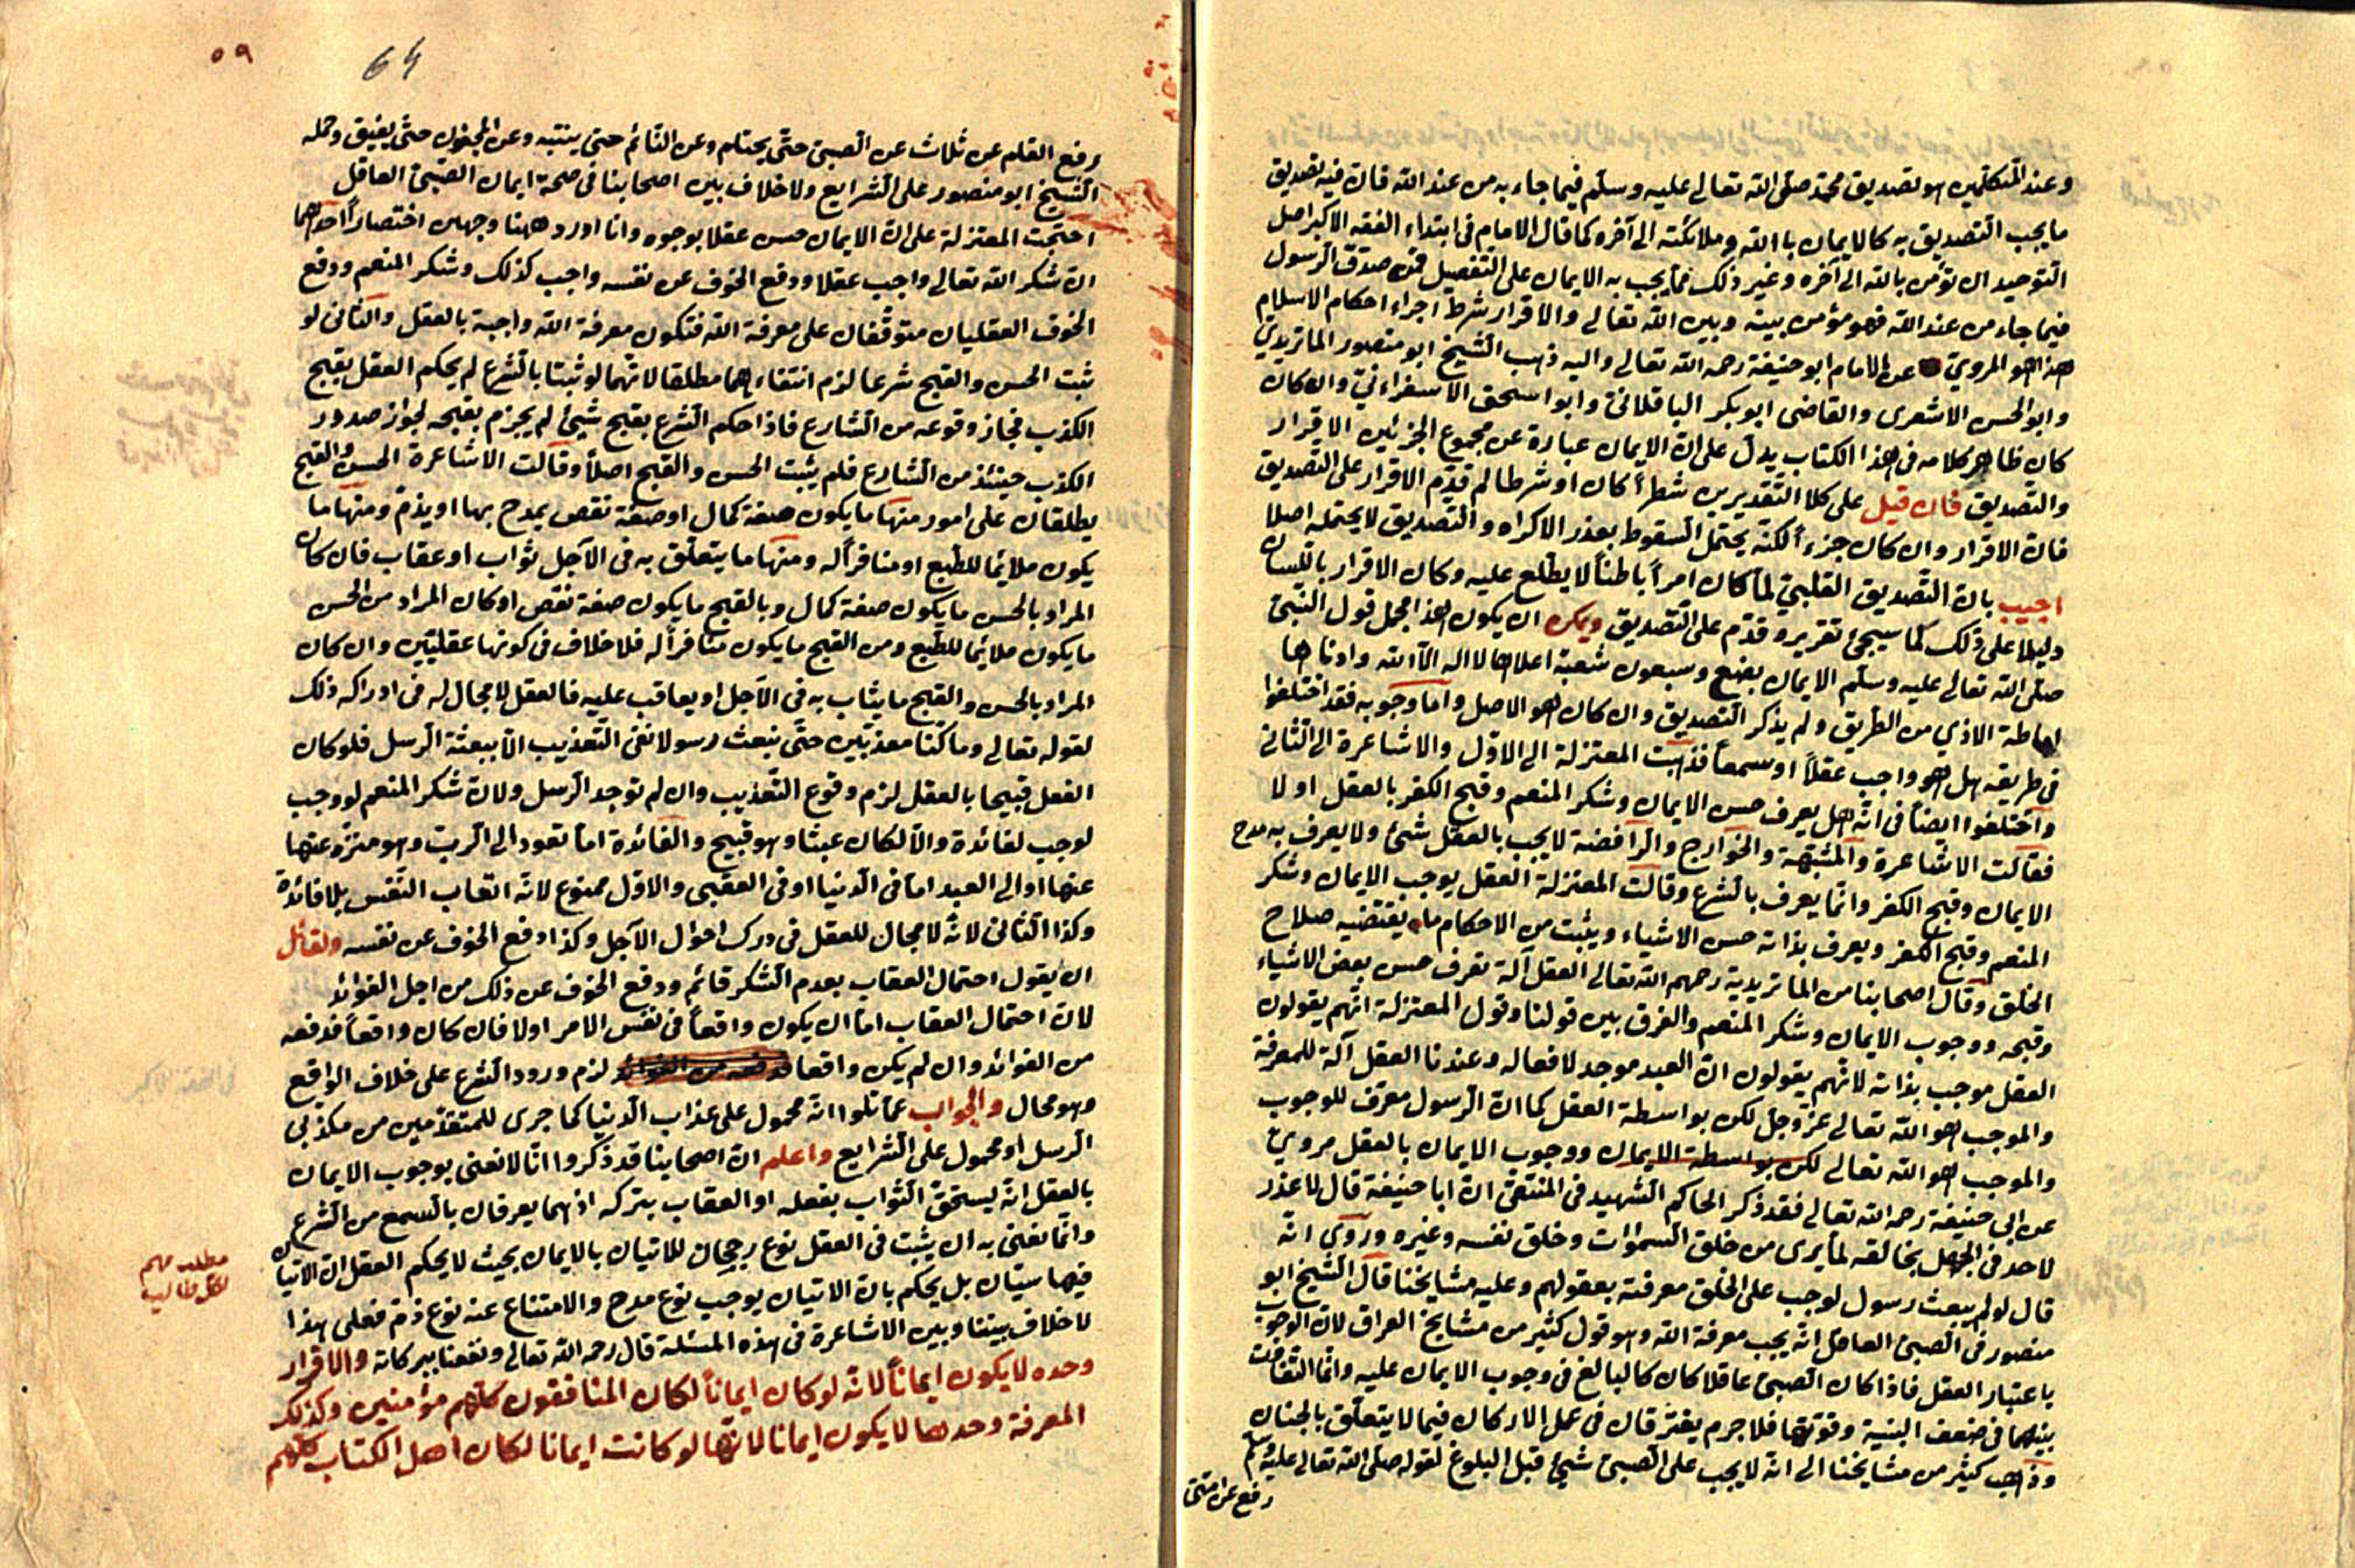 وعند المتكلمين هو تصديق محمد صلى الله تعالى عليه وسلم فيما جاء به من عند الله فان فيه تصديق
ما يجب التصديق به كالايمان بالله وملائكته الى آخره وكما قال الامام فى ابتداء الفقه الاكبر اصل
التوحيد ان تؤمن بالله الى آخره وغير ذلك مما يجب به الايمان على التفصيل فمن صدّق الرسول
فيما جاء من عند الله فهو مؤمن بينه وبين الله تعالى والاقرار شرط اجراء احكام الاسلام
هذا هو المروىّ عن الامام ابو حنيفة رحمه الله تعالى واليه ذهب الشيخ ابو منصور الماتريدي
وابو الحسن الاشعرى والقاضى ابو بكر الباقلانى وابو اسحق الاسفراءنىّ وان كان
كان ظاهر كلامه فى هذا الكتاب يدل على انّ الايمان عبارة عن مجموع الجزئين الاقرار
والتصديق فان قيل على كلا التقديرين شطراً كان او شرطا لم قدّم الاقرار على التصديق
فانّ الاقرار وان كان جزءاً لكنّه يحتمل السقوط بعذر الاكراه والتصديق لا يحتمله اصلا
اجيب بانّ التصديق القلبىّ لمّا كان امراً باطناً لا يطّلع عليه وكان الاقرار باللسان
دليلا على ذلك كما سيجئ تقريره قدّم على التصديق ويمكن ان يكون هذا مجمل قول النبىّ
صلى الله تعالى عليه وسلم الايمان بضع وسبعون شعبة اعلاها لا اله الا الله وادناها
اماطة الاذي من الطريق ولم يذكر التصديق وان كان هو الاصل واما وجوبه فقد اختلفوا
فى طريقه هل هو واجب عقلاً او سمعاً فذهبت المعتزلة الى الاوّل والاشاعرة الى الثانى
واختلفوا ايضاً فى انّه هل يعرف حسن الايمان وشكر المنعم وقبح الكفر بالعقل او لا
فقالت الاشاعرة والمشبّهة والخوارج والرافضة لا يجب بالعقل شئ ولا يعرف به مدح
الايمان وقبح الكفر وانّما يعرف بالشرع وقالت المعتزلة العقل يوجب الايمان وشكر
المنعم وقبح الكفر ويعرف بذاته حسن الاشياء ويثبت من الاحكام ما يقتضيه صلاح
الخلق وقال اصحابنا من الماتريدية رحمهم الله تعالى العقل آلة تعرف حسن بعض الاشياء
وقبحه ووجوب الايمان وشكر المنعم والفرق بين قولنا وقول المعتزلة انّهم يقولون
العقل موجب بذاته لانّهم يقولون انّ العبد موجد لافعاله وعندنا العقل آلة للمعرفة
والموجب هو الله تعالى عزّ وجلّ لكن بواسطة العقل كما انّ الرسول معرّف للوجوب
والموجب هو الله تعالى لكن بواسطة الايمان ووجوب الايمان بالعقل مروىّ
عن ابى حنيفة رحمه الله تعالى فقد ذكر الحاكم الشهيد فى المنتقى انّ ابا حنيفة قال لا عذر
لاحد فى الجهل بخالقه لما يرى من خلق السموات وخلق نفسه وغيره وروي انّه
قال لو لم يبعث رسول لوجب على الخلق معرفته بعقولهم وعليه مشايخنا قال الشيخ ابو
منصور فى الصبىّ العاقل انّه يجب معرفة الله وهو قول كثير من مشايخ العراق لانّ الوجوب
باعتبار العقل فاذا كان الصبىّ عاقلا كان كالبالغ فى وجوب الايمان عليه وانّما التفاوت
بينهما فى ضعف البنية وقوّتها فلا جرم يفترقان فى عمل الاركان فيما لا يتعلّق بالجنان
وذهب كثير من مشايخنا الى انّه لا يجب على الصبىّ شئ قبل البلوغ لقوله صلى الله تعالى عليه وسلم
رفع عن امتى
٥٩
64
رفع القلم عن ثلاث عن الصبىّ حتّى يحتلم وعن النائم حتى ينتبه وعن المجنون حتّى يفيق وحمله
الشيخ ابو منصور على الشرايع ولا خلاف بين اصحابنا فى صحة ايمان الصبىّ العاقل
احتجّت المعتزلة على انّ الايمان حسن عقلا بوجوه وانا اورد ههنا وجهين اختصاراً احدهما
انّ شكر الله تعالى واجب عقلا ودفع الخوف عن نفسه واجب كذلك وشكر المنعم ودفع
الخوف العقليان متوقّفان على معرفة الله فتكون معرفة الله واجبة بالعقل والثانى لو
ثبت الحسن والقبح شرعا لزم انتفاءهما مطلقا لانّهما لو ثبتا بالشرع لم يحكم العقل بقبح
الكذب فجاز وقوعه من الشارع فاذا حكم الشرع بقبح شئ لم يجزم بقبحه لجواز صدور
الكذب حينئذ من الشارع فلم يثبت الحسن والقبح اصلاً وقالت الاشاعرة الحسن والقبح
يطلقان على امور منها ما يكون صفة كمال او صفة نقص يمدح بها او يذمّ ومنها ما
يكون ملائما للطبع او منافراً له ومنها ما يتعلّق به فى الآجل ثواب او عقاب فان كان
المراد بالحسن ما يكون صفة كمال وبالقبح ما يكون صفة نقص او كان المراد من الحسن
ما يكون ملائما للطّبع ومن القبح ما يكون منافراً له فلا خلاف فى كونها عقليّين وان كان
المراد بالحسن والقبح ما يثاب به فى الآجل او يعاقب عليه فالعقل لا مجال له فى ادراكه ذلك
لقوله تعالى وما كنّا معذبين حتّى نبعث رسولا نفى التعذيب الّا ببعثة الرسل فلو كان
الفعل قبيحا بالعقل لزم وقوع التعذيب وان لم توجد الرسل ولانّ شكر المنعم لو وجب
لوجب لفائدة والّا لكان عبثا وهو قبيح والفائدة امّا تعود الى الربّ وهو منزّه عنها
عنها او الى العبد امّا فى الدنيا او فى العقبى والاوّل ممنوع لانّه اتعاب النّفس بلا فائدة
وكذا الثانى لانّه لا مجال للعقل فى درك احوال الآجل وكذا دفع الخوف عن نفسه ولقائل
ان يقول احتمال العقاب بعدم الشكر قائم ودفع الخوف عن ذلك من اجل الفوائد
لانّ احتمال العقاب امّا ان يكون واقعاً فى نفس الامر او لا فان كان واقعاً فدفعه
من الفوائد وان لم يكن واقعا لزم ورود الشرع على خلاف الواقع
وهو محال والجواب عمّا تلوا انّه محمول على عذاب الدنيا كما جرى للمتقدّمين من مكذبى
الرسل او محمول على الشرايع واعلم انّ اصحابنا قد ذكروا انّا لا نعنى بوجوب الايمان
بالعقل انّه يستحقّ الثواب بفعله او العقاب بتركه اذ هما يعرفان بالسمع من الشرع
وانّما نعنى به ان يثبت فى العقل نوع رجحان للاتيان بالايمان بحيث لا يحكم العقل انّ الاتيان
فيها سيّان بل يحكم بانّ الاتيان يوجب نوع مدح والامتناع عنه نوع ذمّ فعلى هذا
لا خلاف بيننا وبين الاشاعرة فى هذه المسئلة قال رحمه الله تعالى ونفعنا ببركاته والاقرار
وحده لا يكون ايماناً لانّه لو كان ايماناً لكان المنافقون كلّهم مؤمنين وكذلك
المعرفة وحدها لا يكون ايمانا لانّها لو كانت ايمانا لكان اهل الكتاب كلّهم
مطلب مهم
لكل طالب